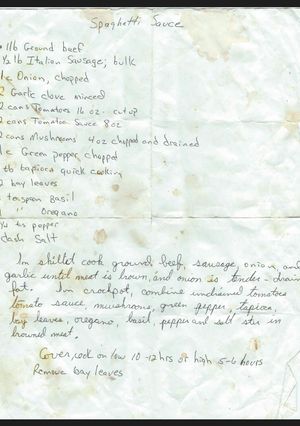 Spaghetti Sauce
1 lb Ground beef
1/2 lb Italian Sausage; bulk
1 c Onion, chopped
2 Garlic clove minced
2 cans Tomatoes 16 oz - cut up
2 cans Tomatoe Sauce 8 oz
2 cans Mushrooms 4 oz chopped and drained
1 c Green pepper, chopped
tb tapioca quick cooking
2 bay leaves
1 teaspoon Basil
1 " Oregano
1/4 ts pepper
dash Salt
In skillet cook ground beef, sausage, onion, and
garlic until meat is brown, and onion is tender - drain
fat. In crockpot, combine undrained tomatoes
tomato sauce, mushrooms, green pepper, tapioca,
bay leaves, oregano, basil, pepper and salt stir in
browned meat.
Cover, cook on low 10-12 hrs or high 5-6 hours
Remove bay leaves